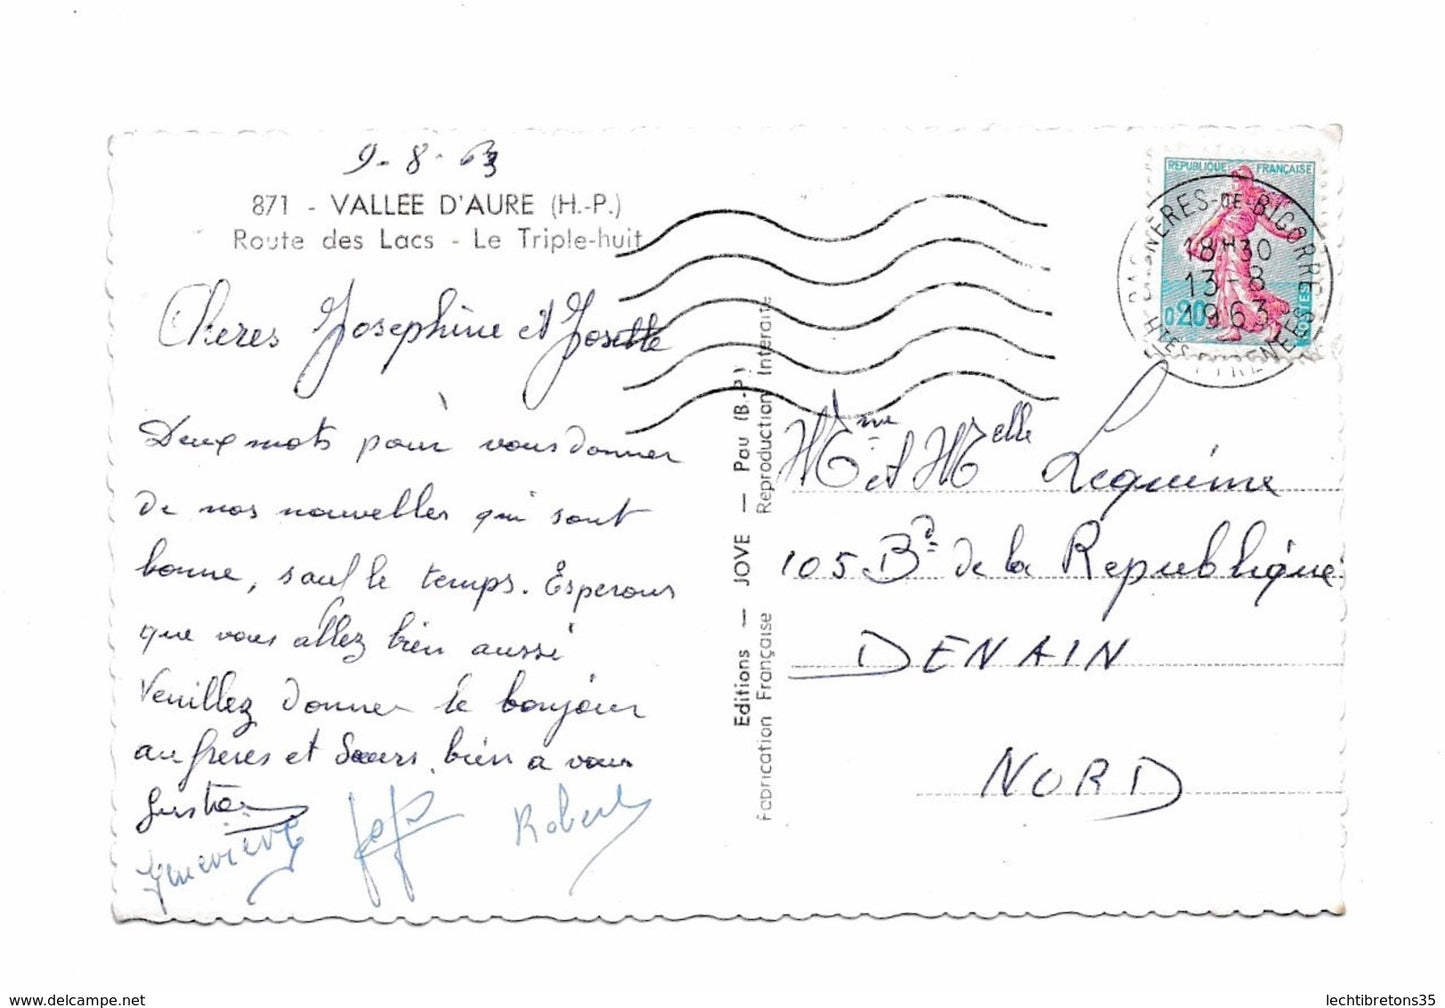 9-8-63
871 - VALLEE D'AURE (H.-P.)
Route des Lacs - Le Triple-huit
Cheres Josephine et Josette
Deux mots pour vous donner
de nos nouvelles qui sont
bonne, sauf le temps. Esperons
que vous allez bien aussi
Veuillez donner le bonjour
au freres et Soeurs. bien a vous
Geneviève
Robert
Editions — JOVE — Pau (B.-P.)
Fabrication Française
Reproduction Interdite
REPUBLIQUE FRANÇAISE
0,20
POSTES
BAGNERES-DE-BIGORRE
18H30
13-8
1963
HTES PYRENEES
Mme et Melle Lequime
105 Bd de la Republique
DENAIN
NORD
delcampe.net
lechtibretons35